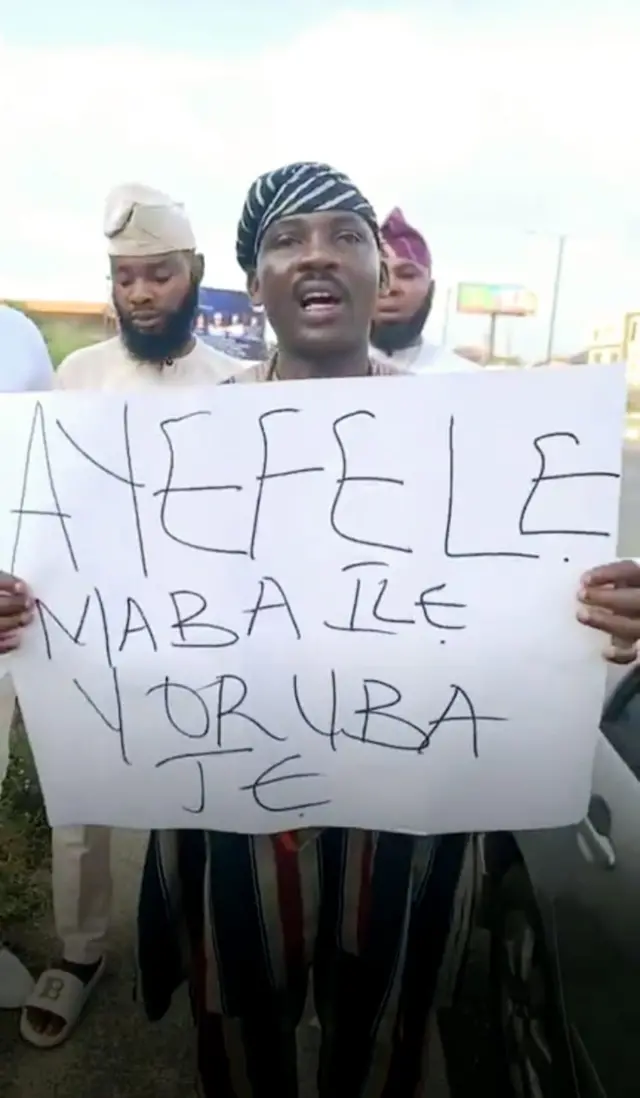 AYEFELẸ
MABA ILẸ
YORUBA
JẸ
B